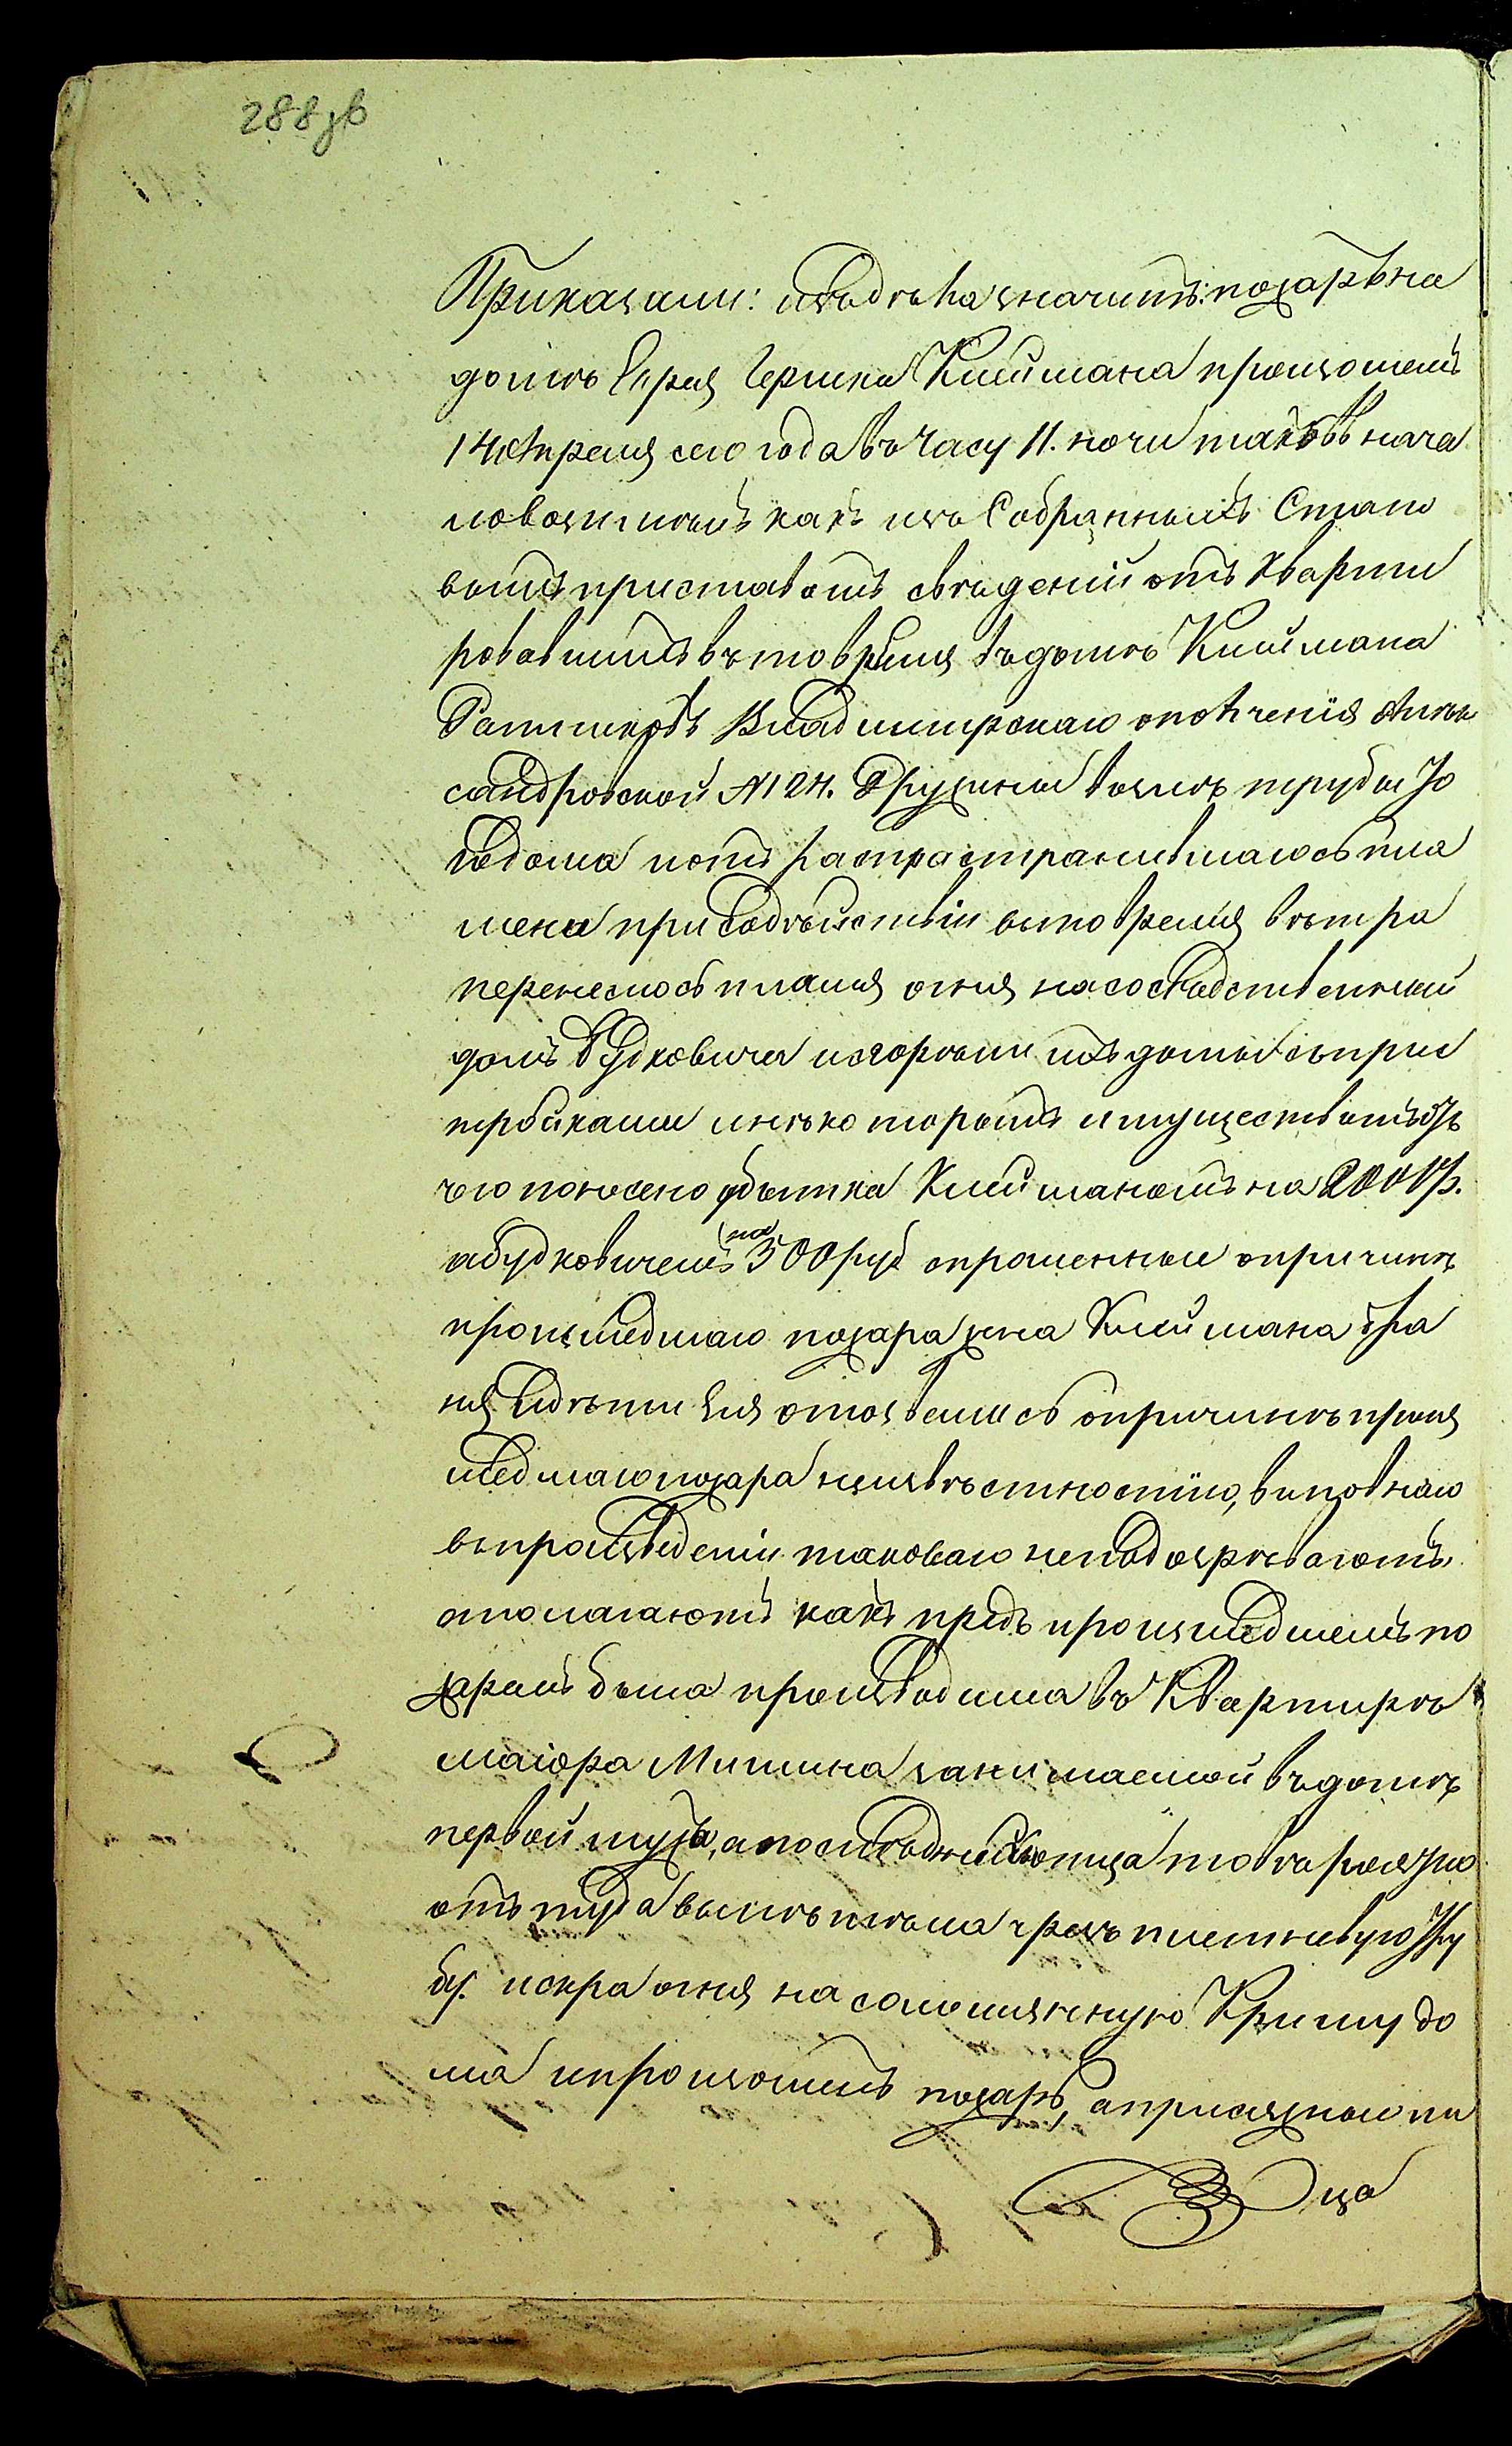 288зв
Приказали: изъ дѣла значитъ: пожаръ на
домѣ Еврея Гершка Клеймана произошелъ
14 Апреля сего года въ часу 11. ночи таковъ нача
ло возимѣлъ какъ изъ собранныхъ Стано
вымъ приставомъ свѣдений отъ кварти
ровавшихъ въ то время въ домѣ Клеймана
Ратниковъ Владимирскаго ополченія Алек
сандровской № 124. Дружины возлѣ трубы
дома потомъ распространившагося пла
мени при содѣйствіи въ то время вѣтра
перенеслось пламя огня на сосѣдственный
домъ Будковича и сгорѣли ихъ домы съ прис
тройками и нѣкоторымъ имуществомъ отъ
чего понесено убытка Клейманомъ на 2000 р.
а Будковичемъ на 300 руб опрошенные о причинѣ
происшедшаго пожара жена Клеймана
отозвались о причинѣ произ
шедшаго пожара неизвѣстностію, виновнаго
въ произведеніи таковаго неподозрѣваютъ
а полагаютъ какъ предъ происшедшемъ по
жаромъ была производима въ Квартирѣ
маіора Митина занимаемой въ домѣ
первой
отъ туда вылѣтѣла чрезъ плетневую тру
бу. искра огня на соломянную Кришу до
ма и произошелъ пожаръ, а присяжные ли
ца